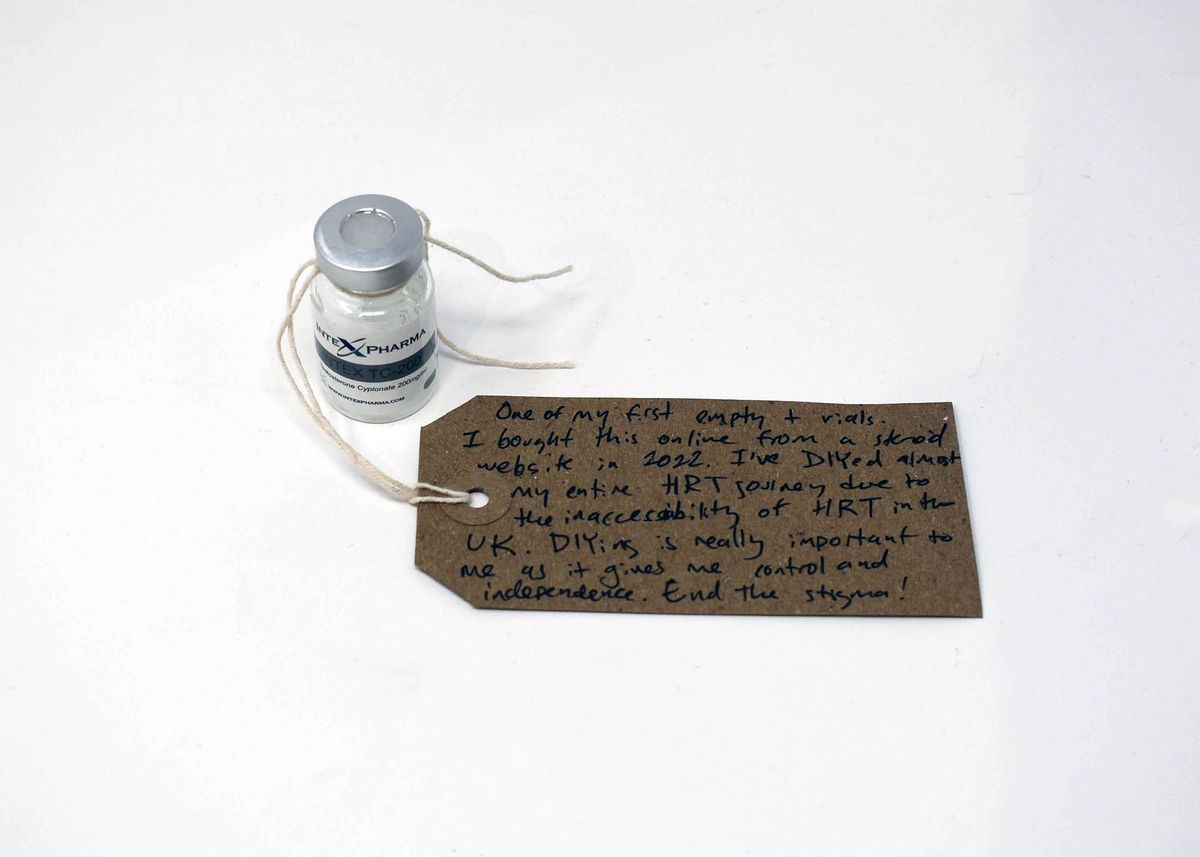 INTEX PHARMA
INTEX TC-200
Testosterone Cypionate 200mg/ml
WWW.INTEXPHARMA.COM
One of my first empty t vials.
I bought this online from a steroid
website in 2022. I've DIYed almost
my entire HRT journey due to
the inaccessibility of HRT in the
UK. DIYing is really important to
me as it gives me control and
independence. End the stigma!